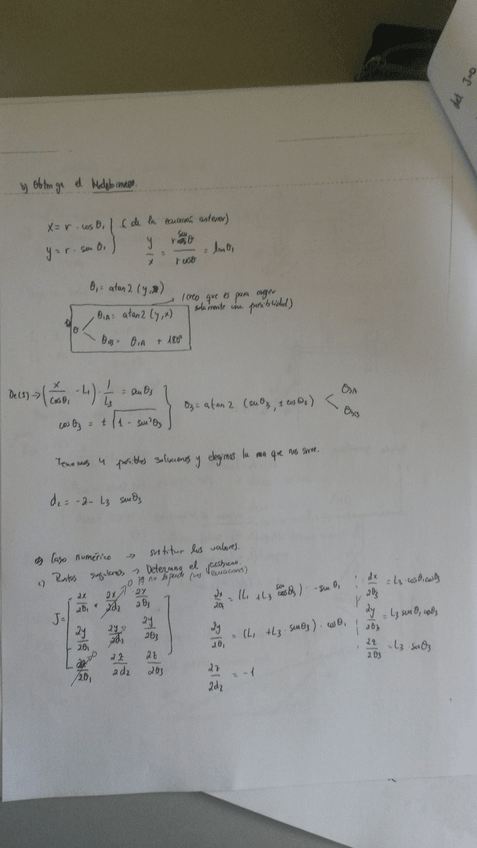 det J=0
b) Obtenga el
x = r · cos θ₁ } ( de la ecuación anterior)
y = r · sen θ₁
y/x = r sen θ / r cos θ = tan θ₁
θ₁ = atan2 (y,x)
(creo que es para coger solamente una posibilidad)
θ₁A = atan2 (y,x)
θ₁B = θ₁A + 180°
De(1) → (x/cosθ₁ - L₁) · 1/L₃ = senθ₃
cosθ₃ = ± √1 - sen²θ₃
θ₃ = atan2 (senθ₃, ± cosθ₃) < θ₃A θ₃B
Tenemos 4 posibles soluciones y elegimos la que nos sirve.
= -2 - L₃ senθ₃
Caso numérico → los valores.
c) Puntos singulares → Determino el
J = [ ∂x/∂θ₁ ∂x/∂d₂ ∂x/∂θ₃
∂y/∂θ₁ ∂y/∂d₂ ∂y/∂θ₃
∂z/∂θ₁ ∂z/∂d₂ ∂z/∂θ₃ ]
∂x/∂θ₁ = (L₁ + L₃ senθ₃) · -sen θ₁
∂y/∂θ₁ = (L₁ + L₃ senθ₃) · cosθ₁
∂z/∂d₂ = -1
∂x/∂θ₃ = L₃ cosθ₁ cosθ₃
∂y/∂θ₃ = L₃ senθ₁ cosθ₃
∂z/∂θ₃ = L₃ senθ₃